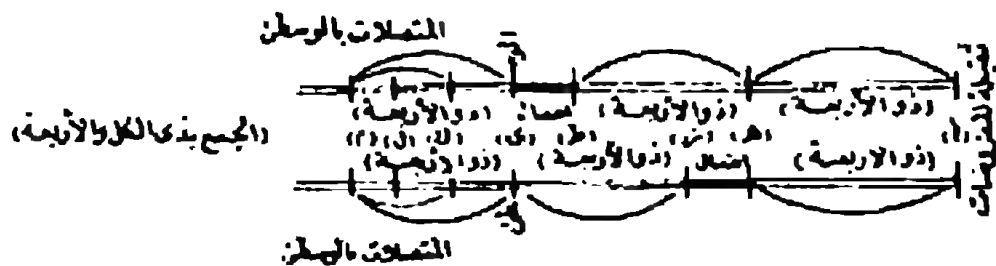 المتصلات بالوسطى
(ذو الأربعة) (ذو الأربعة) انفصال (ذو الأربعة)
(الجمع بذى الكل والأربعة)
(هـ) (ز) (ط) (ى) (ك) (ل) (م)
(ذو الاربعة) انفصال (ذو الأربعة) (ذو الأربعة)
المتصلات بالوسطى